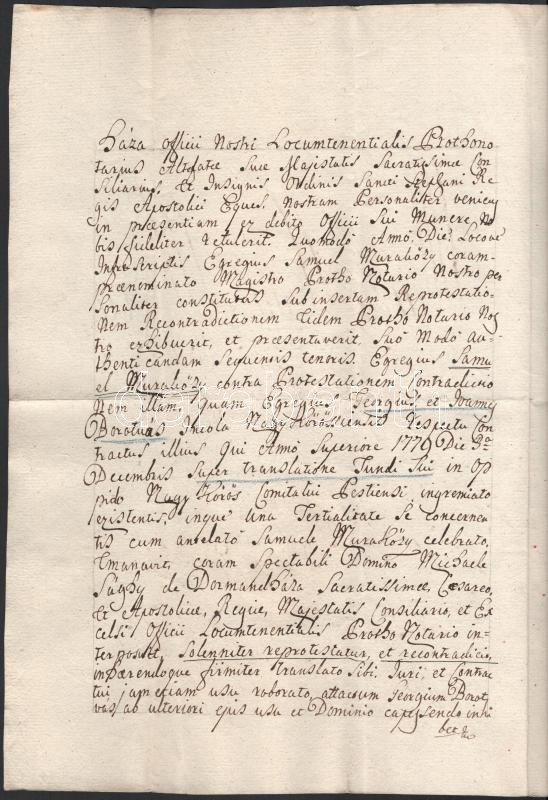 háza Officii Nostri Locumtenentialis Prothono
tarius Altefatae Suae Majestatis Sacratissimae Con
siliarius, et Insignis Ordinis Sancti Stephani Re
gis Apostolici Eques, nostram Personaliter veniens
in praesentiam, ex debito Officii Sui Munere No
bis fideliter retulerit. Quomodo Anno, Die, Locove
Infrascriptis Egregius Samuel Muraközy coram
praenominato Magistro Protho Notario Nostro per
sonaliter constitutus subinsertam Reprotestatio
nem Recontradictionem eidem Protho Notario Nos
tro exhibuerit, et praesentaverit, suo modo au
thenticandam Sequentis tenoris. Egregius Samu
el Muraközy contra Protestationem Contradictio
nem illam, quam Egregius Georgius, et Joannes
Borotvas Incola Nagy Körössiensis respectu Con
tractus illius qui Anno Superiore 1779 Die 3a
Decembris super translatione Fundi Sui in Op
pido Nagy Körös Comitatui Pestiensi ingremiato
existentis, inque una Tertialitate se concernen
tis cum antelato Samuele Muraközy celebrato,
Emanavit, coram Spectabili Domino Michaele
Sághy de Dormandháza Sacratissimae, Caesareo,
et Apostolicae, Regiae, Majestatis Consiliario, et Ex
celsi Officii Locumtenentialis Protho Notario in
terposuit, Solenniter reprotestatur, et recontradicit,
inhaerendoque firmiter translato sibi Juri, et Contrac
tui jam etiam usu roborato, attactum Georgium Borot
vas, ab ulteriori ejus usu et Dominio capessendo inhi
bet